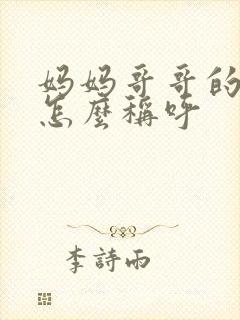 妈妈哥哥的
怎麼稱呼
李詩雨